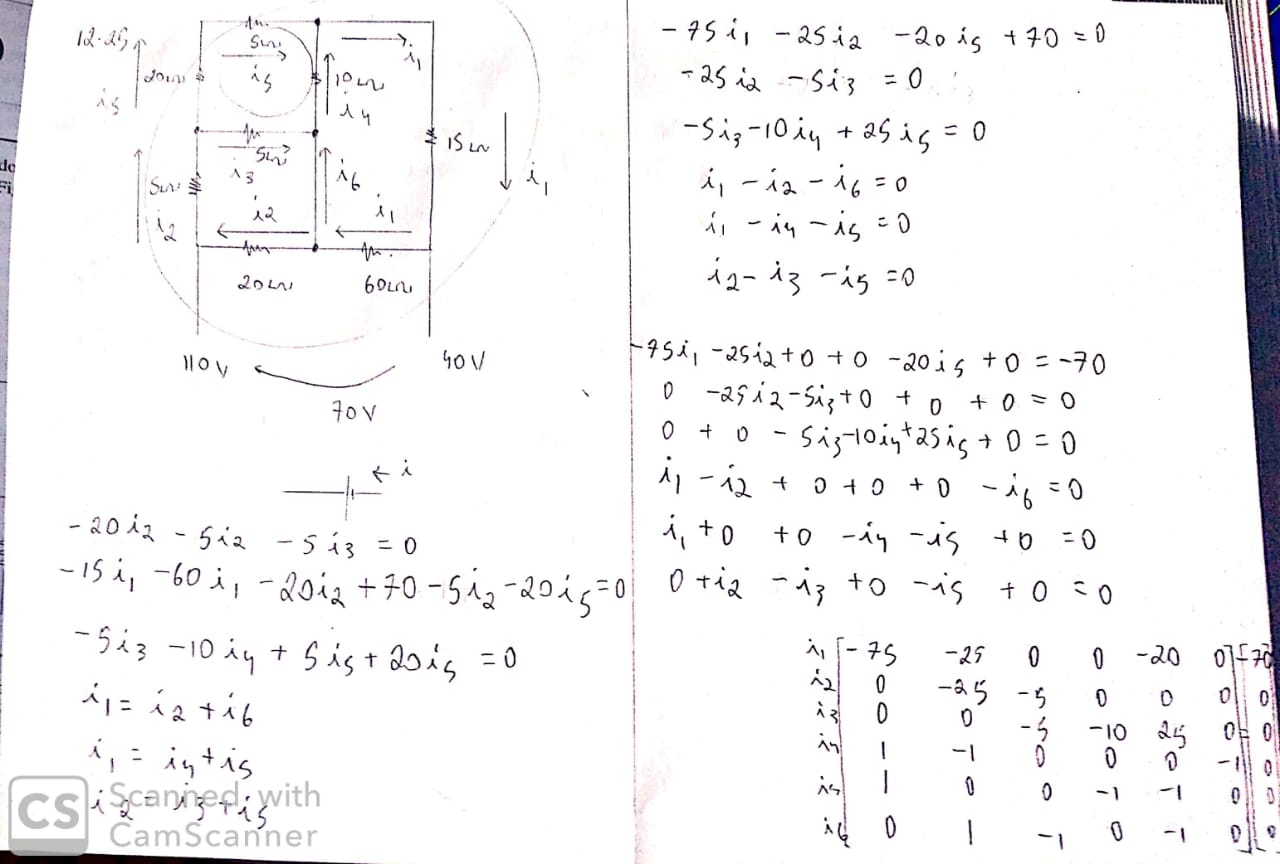 12.25
5Ω
i5
i1
20Ω
i5
10Ω
i4
15Ω
i1
5Ω
i3
5Ω
i2
i6
i2
i1
20Ω
60Ω
110V
40V
70V
← i
-20 i2 - 5i2 - 5 i3 = 0
-15 i1 - 60 i1 - 20i2 + 70 - 5 i2 - 20 i5 = 0
-5i3 - 10 i4 + 5 i5 + 20i5 = 0
i1 = i2 + i6
i1 = i4 + i5
i2 = i3 + i5
CS Scanned with
CamScanner
-75 i1 - 25 i2 - 20 i5 + 70 = 0
-25 i2 - 5i3 = 0
-5i3 - 10 i4 + 25 i5 = 0
i1 - i2 - i6 = 0
i1 - i4 - i5 = 0
i2 - i3 - i5 = 0
-75i1 - 25i2 + 0 + 0 - 20 i5 + 0 = -70
0 - 25 i2 - 5i3 + 0 + 0 + 0 = 0
0 + 0 - 5i3 - 10i4 + 25 i5 + 0 = 0
i1 - i2 + 0 + 0 + 0 - i6 = 0
i1 + 0 + 0 - i4 - i5 + 0 = 0
0 + i2 - i3 + 0 - i5 + 0 = 0
i1 [ -75 -25 0 0 -20 0 ] [ -70
i2 0 -25 -5 0 0 0 0
i3 0 0 -5 -10 25 0 = 0
i4 1 -1 0 0 0 -1 0
i5 1 0 0 -1 -1 0 0
i6 0 1 -1 0 -1 0 0